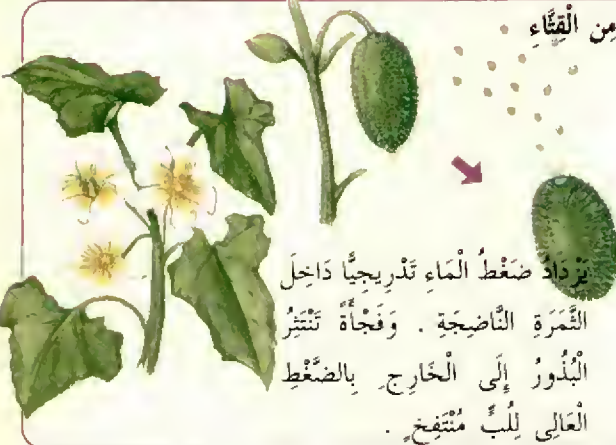 مِن الْقِثَّاءِ
يَزْدَادُ ضَغْطُ الْمَاءِ تَدْرِيجِيًّا دَاخِلَ
الثَّمَرَةِ النَّاضِجَةِ . وَفَجْأَةً تَنْتَثِرُ
الْبُذُورُ إِلَى الْخَارِجِ بِالضَّغْطِ
الْعَالِى لِلُبٍّ مُنْتَفِخٍ .